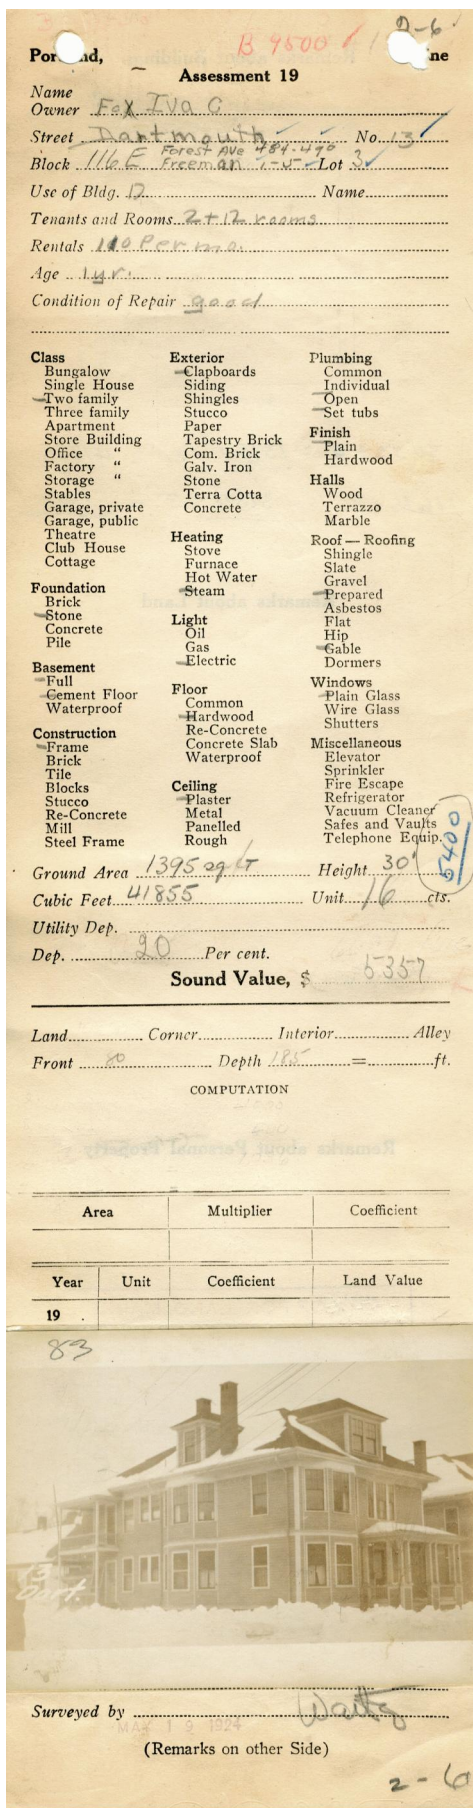 2-6
B 9500
Portland, ne
Assessment 19
Name
Owner Fox Iva C
Street Dartmouth No. 13
Forest Ave 484-490
Block 116 E Freeman 1-5 Lot 3
Use of Bldg. D Name
Tenants and Rooms 2+12 rooms
Rentals 110 Per mo.
Age 1 yr.
Condition of Repair good
Class
Bungalow
Single House
Two family
Three family
Apartment
Store Building
Office "
Factory "
Storage "
Stables
Garage, private
Garage, public
Theatre
Club House
Cottage
Foundation
Brick
Stone
Concrete
Pile
Basement
Full
Cement Floor
Waterproof
Construction
Frame
Brick
Tile
Blocks
Stucco
Re-Concrete
Mill
Steel Frame
Exterior
Clapboards
Siding
Shingles
Stucco
Paper
Tapestry Brick
Com. Brick
Galv. Iron
Stone
Terra Cotta
Concrete
Heating
Stove
Furnace
Hot Water
Steam
Light
Oil
Gas
Electric
Floor
Common
Hardwood
Re-Concrete
Concrete Slab
Waterproof
Ceiling
Plaster
Metal
Panelled
Rough
Plumbing
Common
Individual
Open
Set tubs
Finish
Plain
Hardwood
Halls
Wood
Terrazzo
Marble
Roof — Roofing
Shingle
Slate
Gravel
Prepared
Asbestos
Flat
Hip
Gable
Dormers
Windows
Plain Glass
Wire Glass
Shutters
Miscellaneous
Elevator
Sprinkler
Fire Escape
Refrigerator
Vacuum Cleaner
Safes and Vaults
Telephone Equip.
5400
Ground Area 1395 sq ft Height 30'
Cubic Feet 41855 Unit 16 cts.
Utility Dep.
Dep. 20 Per cent.
Sound Value, $ 5357
Land Corner Interior Alley
Front 80 Depth 185 = ft.
COMPUTATION
Area Multiplier Coefficient
Year Unit Coefficient Land Value
19
83
13
Dart.
Surveyed by
MAY 19 1924
(Remarks on other Side)
2-6